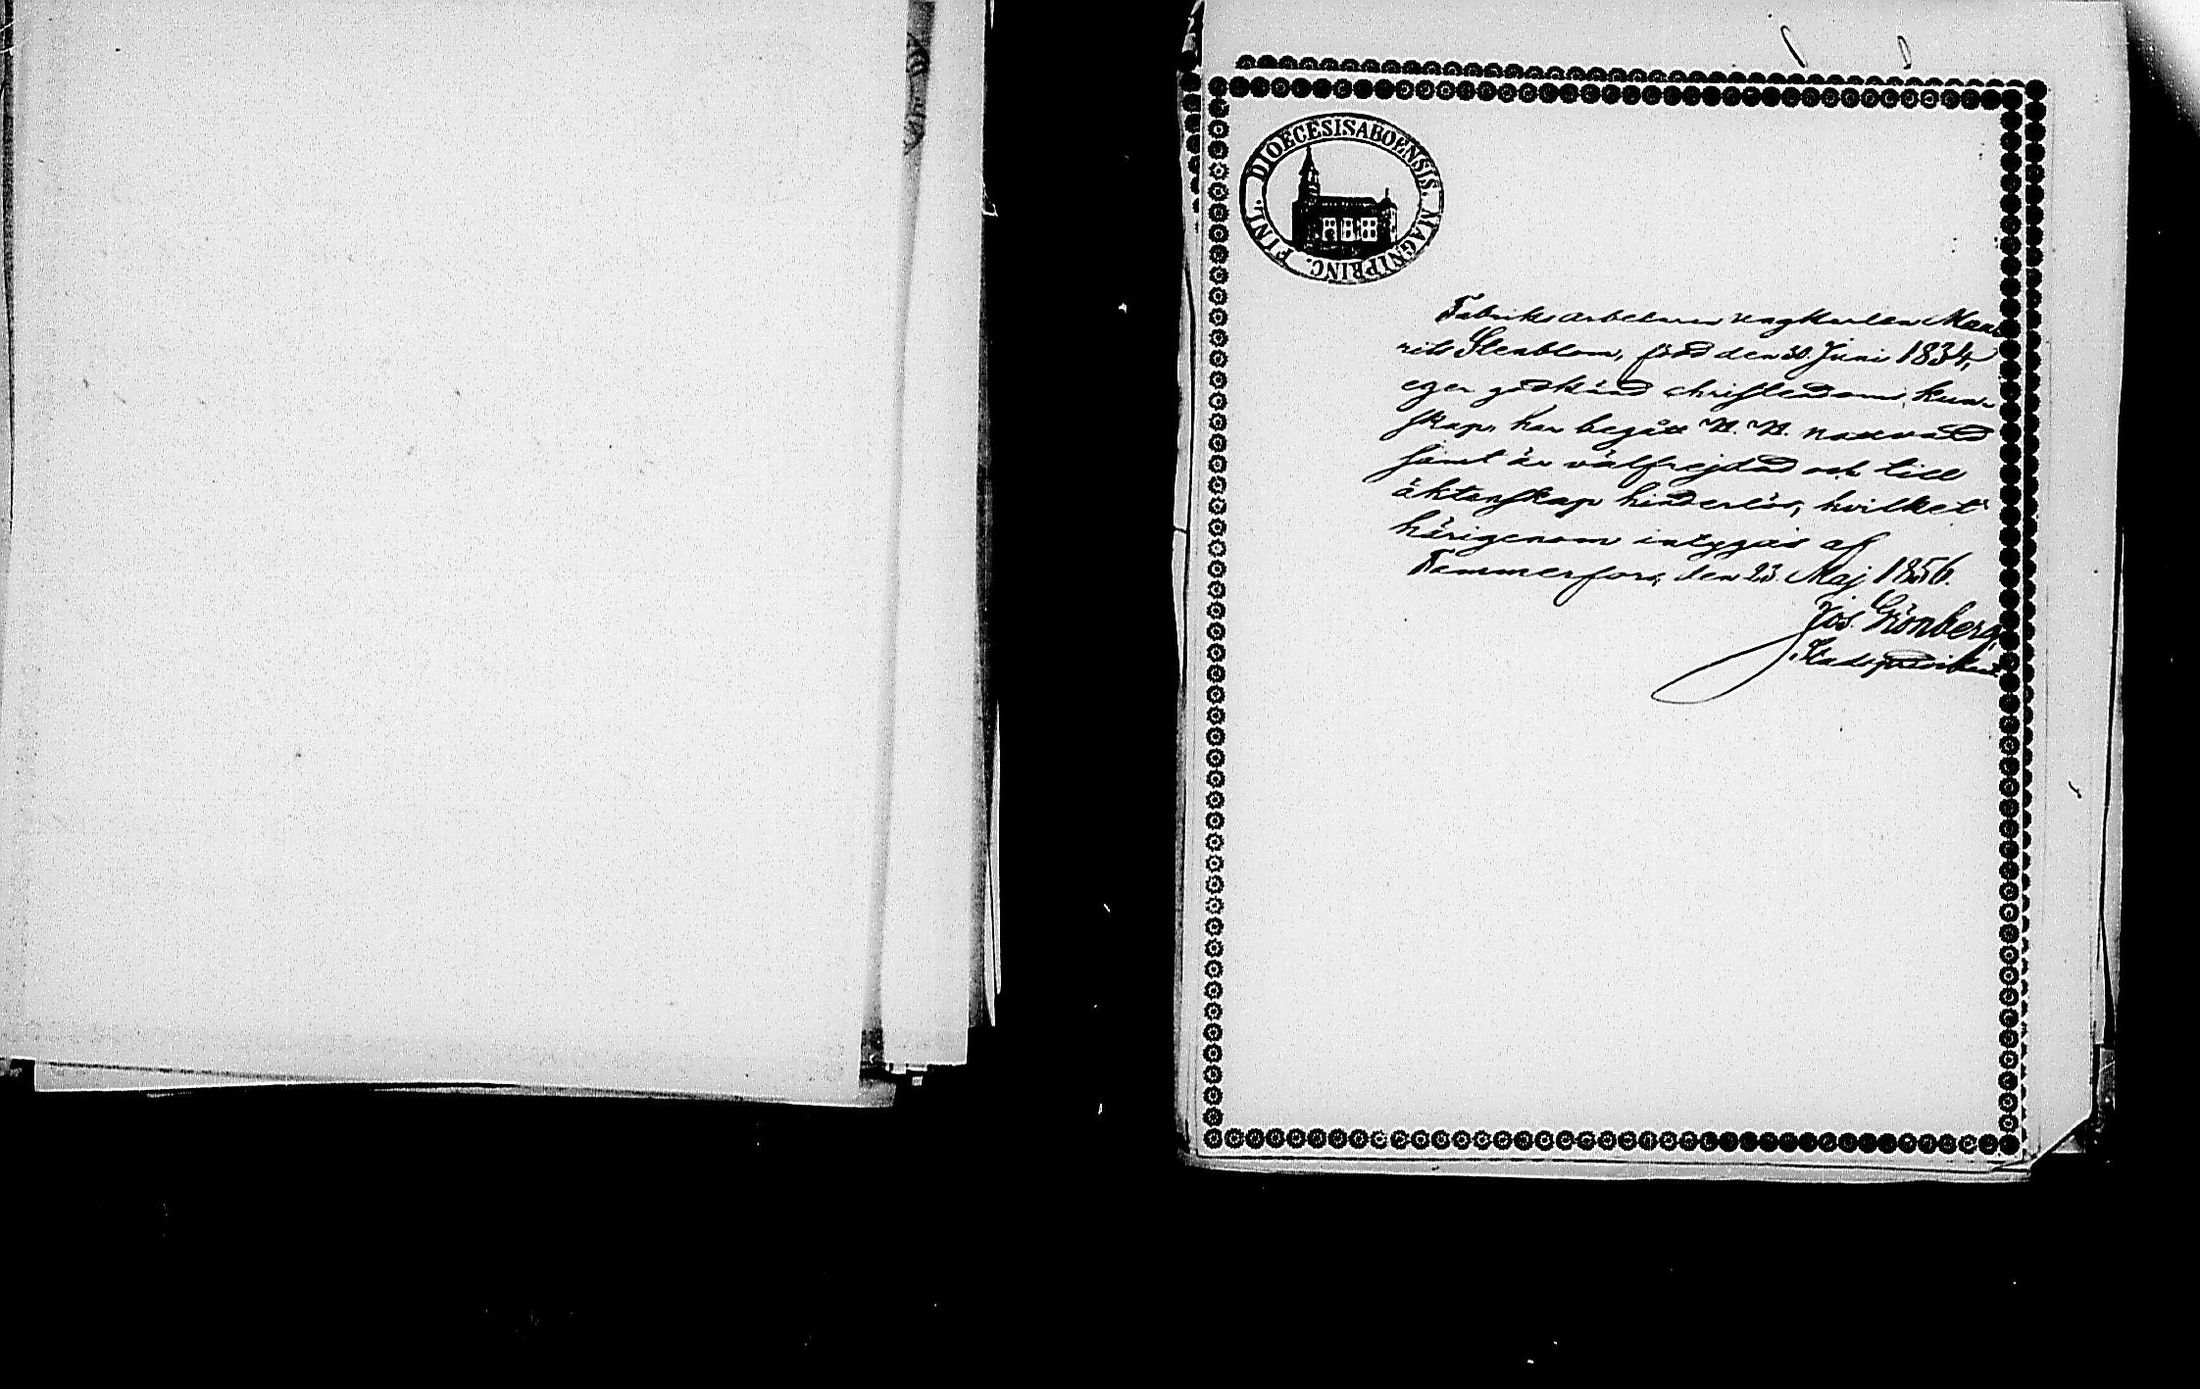 DIOECESIS ABOENSIS. MAGNI PRINC. FINL.
Fabriks arbetaren ungkarlen Mau-
rits Stenblom, född den 30. Juni 1834,
eger godkänd christendoms kun-
skap, har begått H. H. nattvard
samt är välfrejdad och till
äktenskap hinderlös, hvilket
härigenom intygas af
Tammerfors, den 23. Maj 1856.
Jos. Grönberg